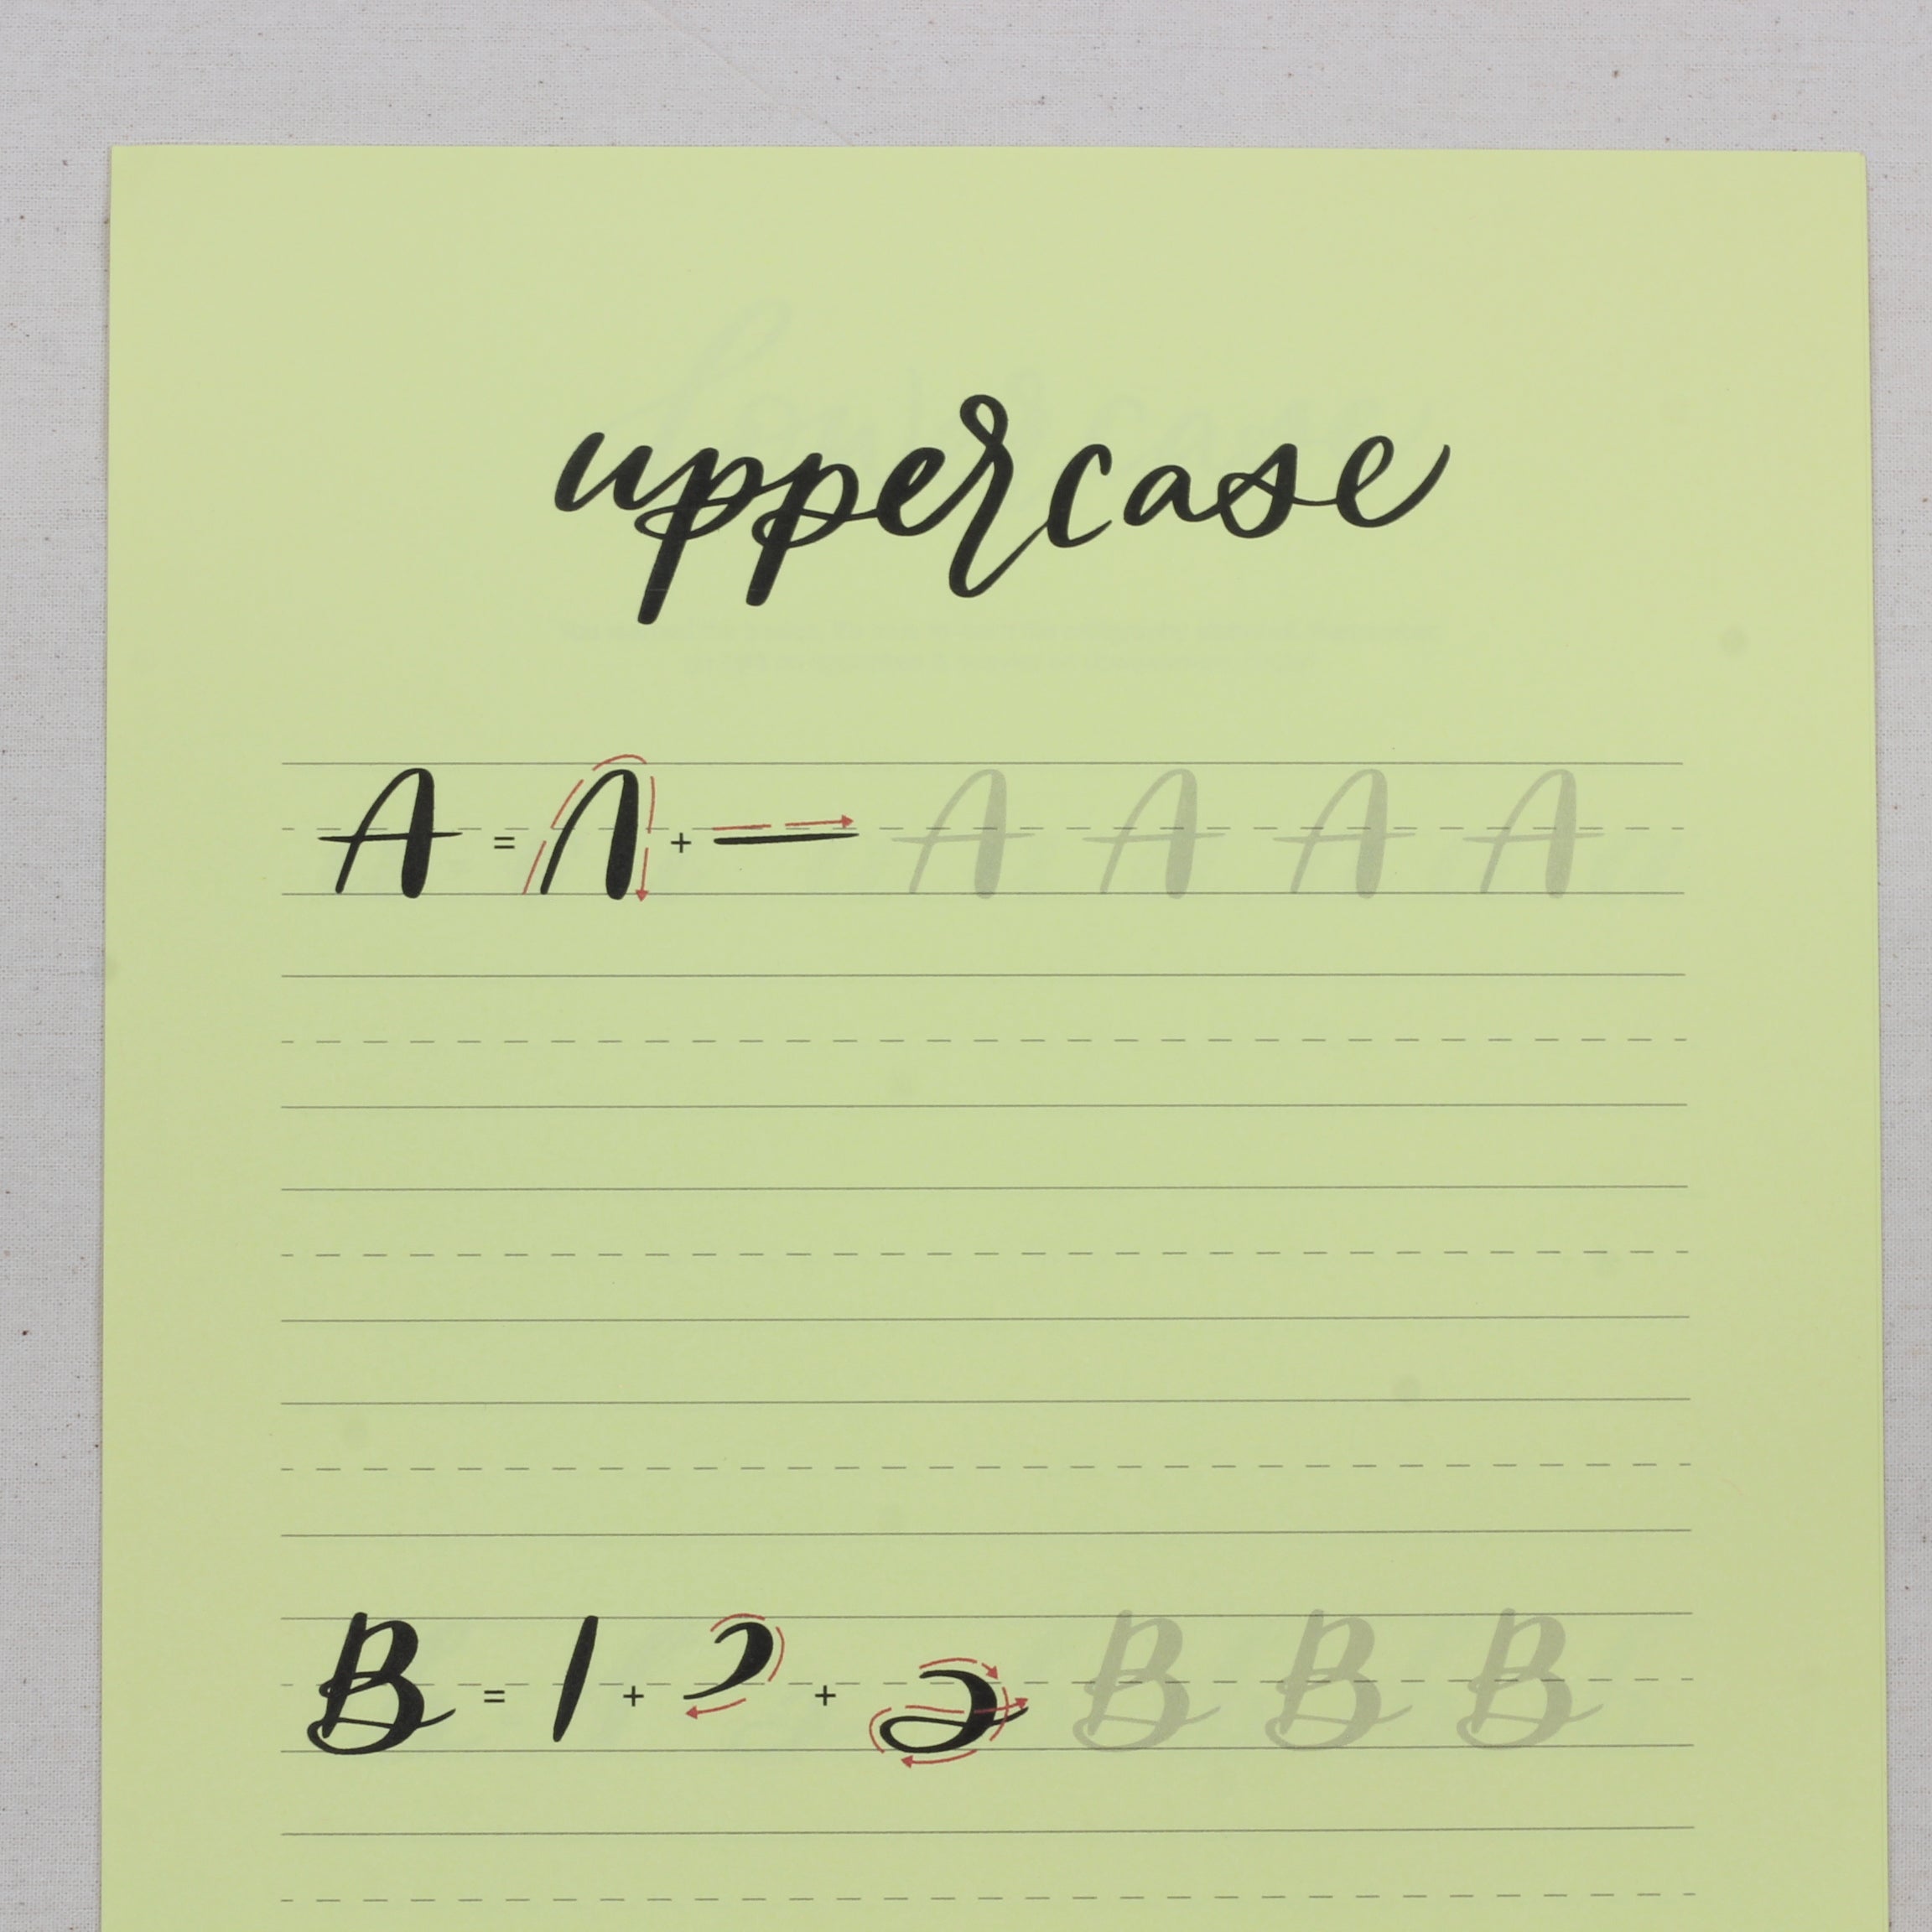 uppercase
A = + A A A A
B = + + B B B